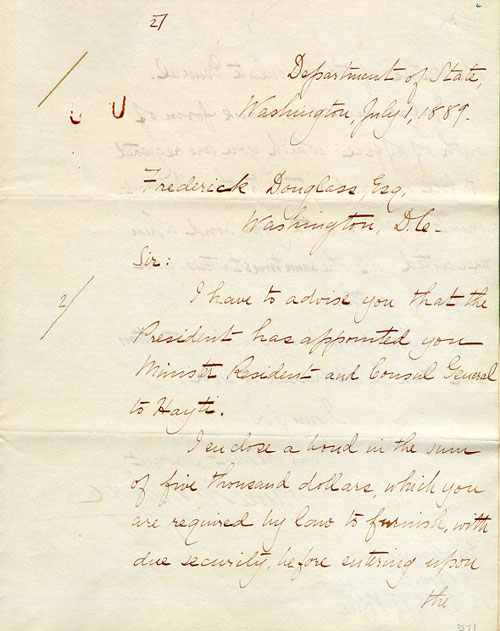 2/
Department of State,
Washington, July 1, 1889.
Frederick Douglass, Esq.
Washington, D.C.
Sir:
2/
I have to advise you that the
President has appointed you
Minister Resident and Consul General
to Hayti.
I enclose a bond in the sum
of five thousand dollars, which you
are required by law to furnish, with
due security, before entering upon
the